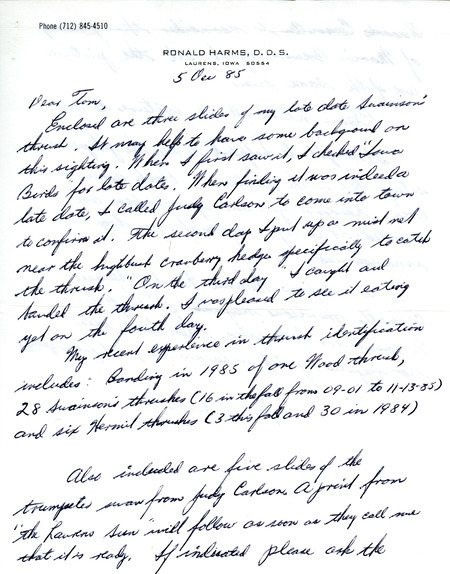 Phone (712) 845-4510
RONALD HARMS, D. D. S.
LAURENS, IOWA 50554
5 Dec 85
Dear Tom,
Enclosed are three slides of my late date Swainson's
thrush. It may help to have some background on
this sighting. When I first saw it, I checked "Iowa
Birds" for late dates. When finding it was indeed a
late date, I called Judy Carlson to come into town
to confirm it. The second day I put up a mist net
near the highbush cranberry hedge specifically to catch
the thrush. "On the third day" I caught and
banded the thrush. I was pleased to see it eating
yet on the fourth day.
My recent experience in thrush identification
includes: Banding in 1985 of one Wood thrush,
28 Swainson's thrushes (16 in the fall from 09-01 to 11-13-85)
and six Hermit thrushes (3 this fall and 30 in 1984)
Also included are five slides of the
trumpeter swan from Judy Carlson. A print from
"the Laurens Sun" will follow as soon as they call me
that it is ready. If indicated please ask the